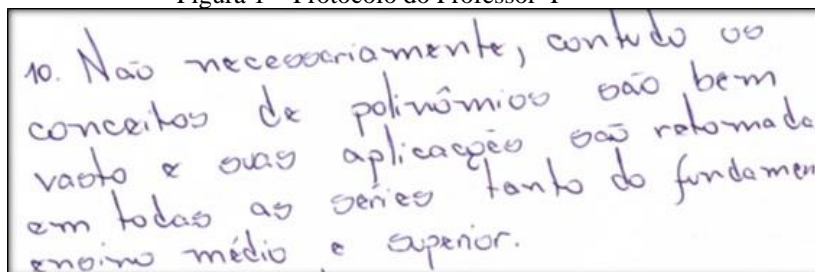 Figura 1 – Protocolo do Professor 1
10. Não necessariamente, contudo os
conceitos de polinômios são bem
vasto e suas aplicações são retomada
em todas as séries tanto do fundamen
ensino médio e superior.